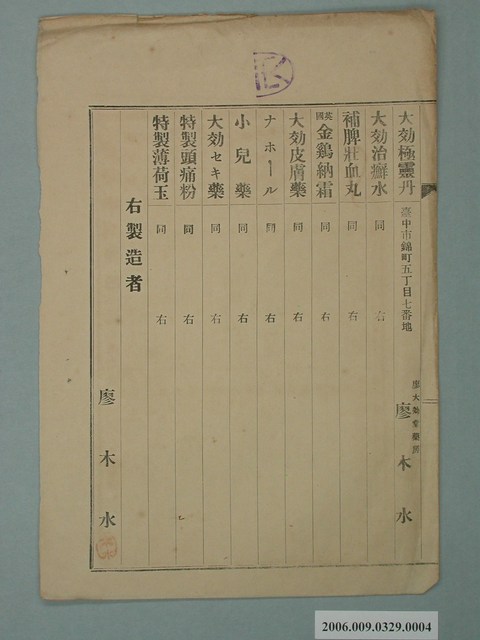 大効極靈丹 臺中市錦町五丁目七番地 廖大効堂藥房 廖木水
大効治癬水 同 右
補脾莊血丸 同 右
英國金鷄納霜 同 右
大効皮膚藥 同 右
ナホール 同 右
小兒藥 同 右
大効セキ藥 同 右
特製頭痛粉 同 右
特製薄荷玉 同 右
右製造者
廖木水
2006.009.0329.0004